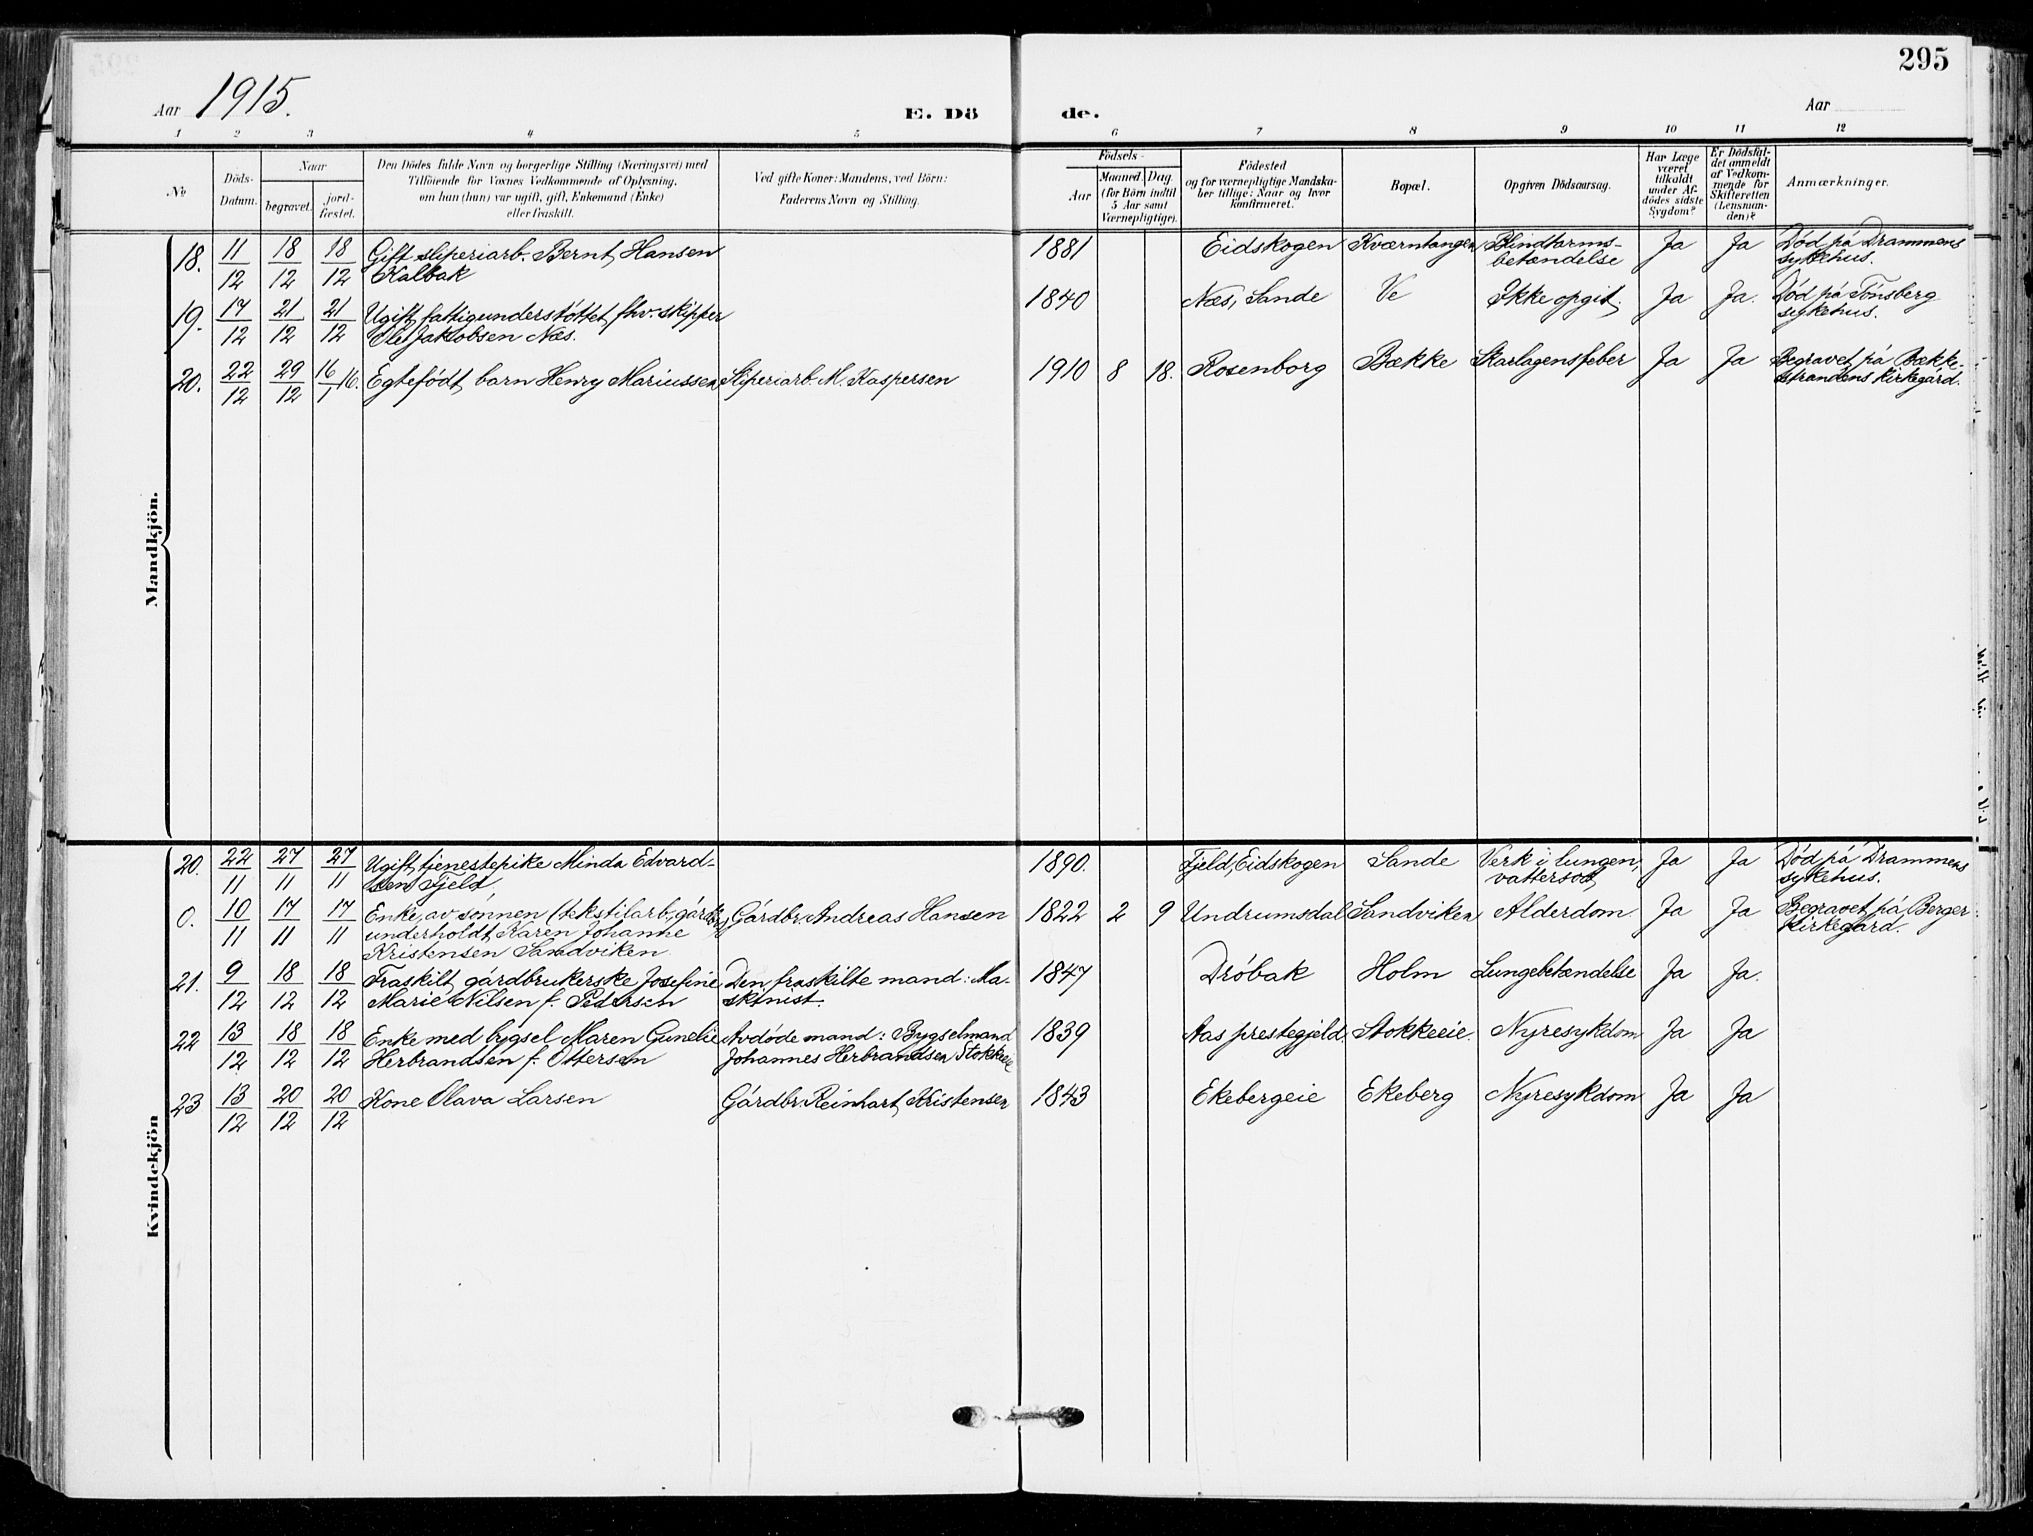 295
Aar 1915.
E. Dö
de.
Aar
1 2 3 4 5 6 7 8 9 10 11 12
No
Döds-
Datum.
Naar
begravet.
jord-
fæstet.
Den Dödes fulde Navn og borgerlige Stilling (Næringsvei) med
Tilföiende for Voxnes Vedkommende af Oplysning,
om han (hun) var ugift, gift, Enkemand (Enke)
eller fraskilt.
Ved gifte Koner: Mandens, ved Börn:
Faderens Navn og Stilling.
Födsels-
Aar
Maaned. Dag.
(for Börn indtil
5 Aar samt
Værnepligtige).
Födested
og for værnepligtige Mandska-
ber tillige: Naar og hvor
konfirmeret.
Bopæl.
Opgiven Dödsaarsag.
Har Læge
været
tilkaldt
under Af-
dödes sidste
Sygdom?
Er Dödsfal-
det anmeldt
af Vedkom-
mende for
Skifteretten
(Lensman-
den)?
Anmærkninger.
Mandkjön.
18. 11/12 18/12 18/12 Gift sliperiarb. Bernt Hansen 1881 Eidskogen Kværntangen Blindtarms- Ja Ja Død på Drammens
Kalbak betændelse sykehus.
19. 17/12 21/12 21/12 Ugift fattigunderstøttet fhv. skipper 1840 Næs, Sande Ve Ikke opgit. Ja Ja. Død på Tønsberg
Ole Jakobsen Næs. sykehus.
20. 22/12 29/12 16/1 16. Egtefødt barn Henry Mariussen Sliperiarb. M. Kaspersen 1910 8 18. Rosenborg Bække Skarlagensfeber Ja Ja Begravet på Bække-
strandens kirkegård.
Kvindekjön
20. 22/11 27/11 27/11 Ugift tjenestepike Minda Edvard- 1890. Fjeld, Eidskogen Sande Verk i lungen, Ja Ja Død på Drammens
sen Fjeld vattersot sykehus.
0. 10/11 17/11 17/11 Enke, av sønnen (tekstilarb., gårdbr.) Gårdbr. Andreas Hansen 1822 2 9 Undrumsdal Sandviken Alderdom. Ja Ja Begravet på Berger
underholdt, Karen Johanne kirkegård.
Kristensen Sandviken.
21. 9/12 18/12 18/12 Fraskilt gårdbrukerske Josefine Den fraskilte mand: Ma- 1847 Drøbak Holm Lungebetændelse Ja Ja.
Marie Nilsen f. Pedersen skinist.
22 13/12 18/12 18/12 Enke med bygsel Maren Gunelie Avdøde mand: Bygselmand 1839 Aas prestegjeld. Stokkeeie. Nyresykdom Ja Ja
Herbrandsen f. Ottersen Johannes Herbrandsen Stokkeeie
23 13/12 20/12 20/12 Kone Olava Larsen Gårdbr. Reinhart Kristensen 1843 Ekebergeie Ekeberg Nyresykdom Ja Ja